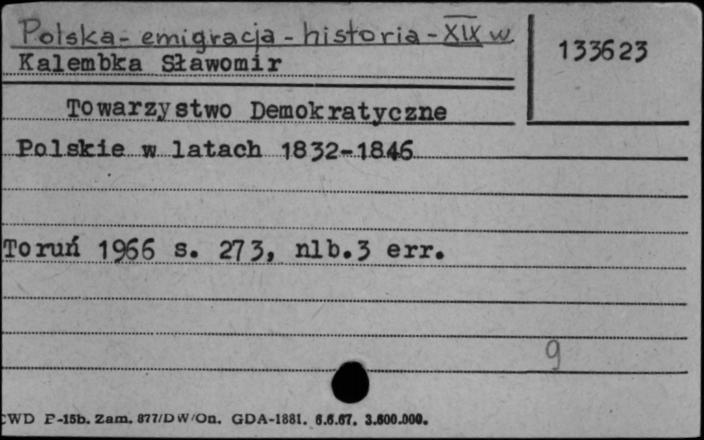 Polska - emigracja - historia - XIX w.
133623
Kalembka Sławomir
Towarzystwo Demokratyczne
Polskie w latach 1832-1846
Toruń 1966 s. 273, nlb.3 err.
9
CWD P-15b. Zam. 877/DW/On. GDA-1881. 6.6.67. 3.600.000.